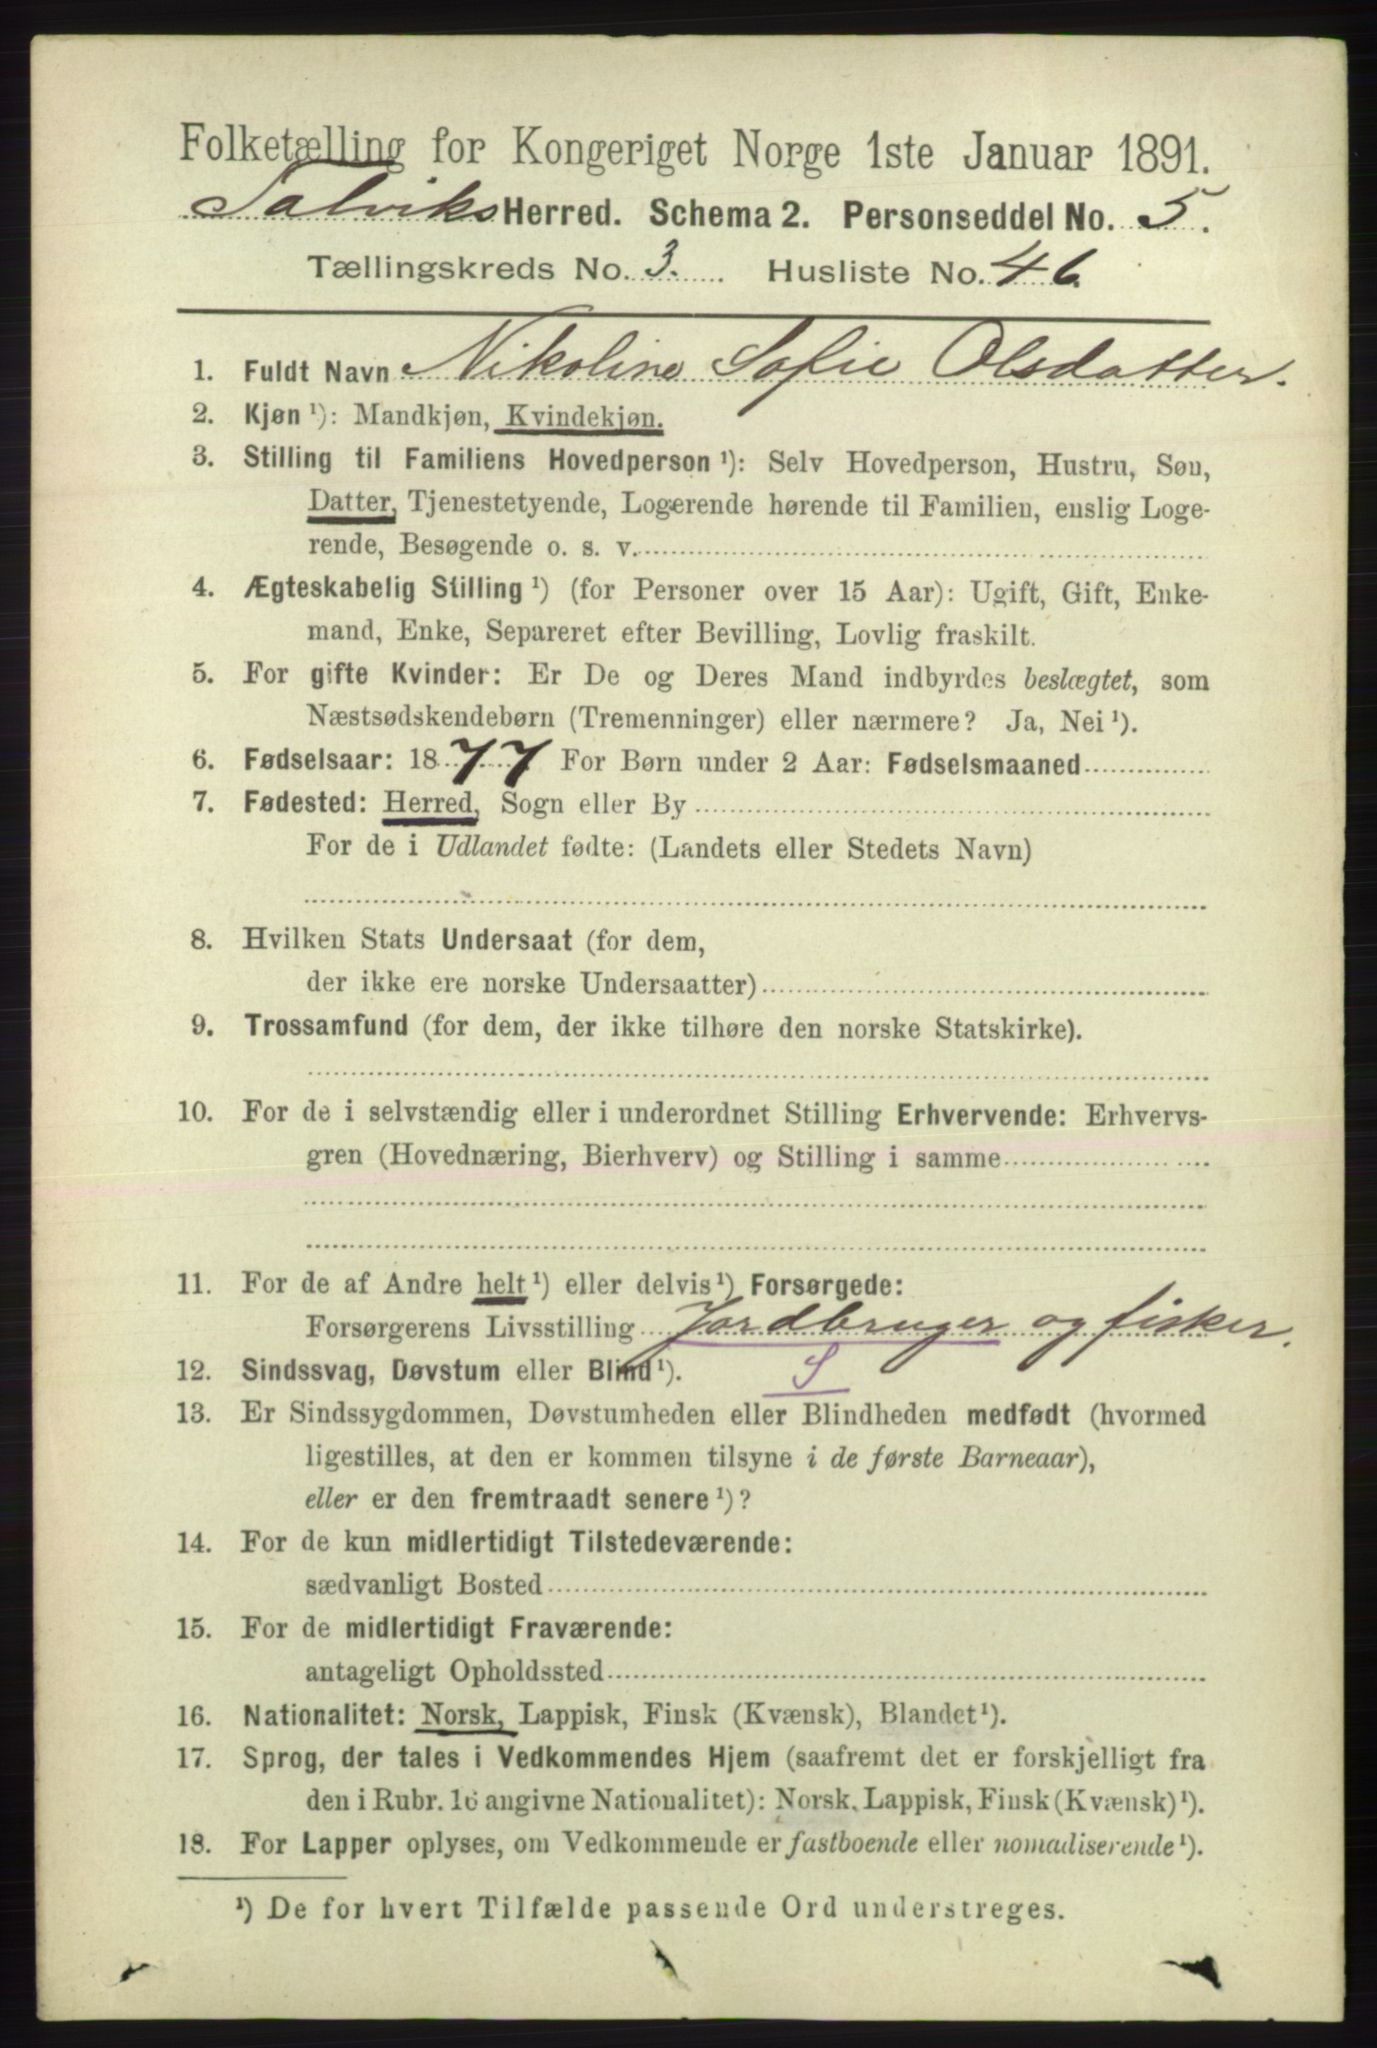 Folketælling for Kongeriget Norge 1ste Januar 1891.
Talviks Herred. Schema 2. Personseddel No. 5.
Tællingskreds No. 3. Husliste No. 46.
1. Fuldt Navn Nikoline Sofie Olsdatter.
2. Kjøn ¹): Mandkjøn, Kvindekjøn.
3. Stilling til Familiens Hovedperson ¹): Selv Hovedperson, Hustru, Søn,
Datter, Tjenestetyende, Logerende hørende til Familien, enslig Loge-
rende, Besøgende o. s. v.
4. Ægteskabelig Stilling ¹) (for Personer over 15 Aar): Ugift, Gift, Enke-
mand, Enke, Separeret efter Bevilling, Lovlig fraskilt.
5. For gifte Kvinder: Er De og Deres Mand indbyrdes beslægtet, som
Næstsødskendebørn (Tremenninger) eller nærmere? Ja, Nei ¹).
6. Fødselsaar: 1877 For Børn under 2 Aar: Fødselsmaaned
7. Fødested: Herred, Sogn eller By
For de i Udlandet fødte: (Landets eller Stedets Navn)
8. Hvilken Stats Undersaat (for dem,
der ikke ere norske Undersaatter)
9. Trossamfund (for dem, der ikke tilhøre den norske Statskirke).
10. For de i selvstændig eller i underordnet Stilling Erhvervende: Erhvervs-
gren (Hovednæring, Bierhverv) og Stilling i samme
11. For de af Andre helt ¹) eller delvis ¹) Forsørgede:
Forsørgerens Livsstilling Jordbruger og fisker.
12. Sindssvag, Døvstum eller Blind ¹). S
13. Er Sindssygdommen, Døvstumheden eller Blindheden medfødt (hvormed
ligestilles, at den er kommen tilsyne i de første Barneaar),
eller er den fremtraadt senere ¹)?
14. For de kun midlertidigt Tilstedeværende:
sædvanligt Bosted
15. For de midlertidigt Fraværende:
antageligt Opholdssted
16. Nationalitet: Norsk, Lappisk, Finsk (Kvænsk), Blandet ¹).
17. Sprog, der tales i Vedkommendes Hjem (saafremt det er forskjelligt fra
den i Rubr. 16 angivne Nationalitet): Norsk, Lappisk, Finsk (Kvænsk) ¹).
18. For Lapper oplyses, om Vedkommende er fastboende eller nomadiserende ¹).
¹) De for hvert Tilfælde passende Ord understreges.